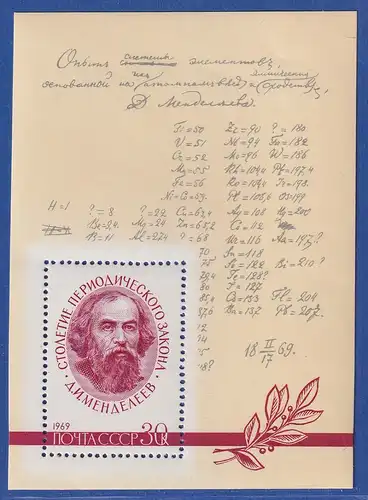 Опытъ системы элементовъ,
основанной на ихъ атомномъ весе и химическомъ сходстве,
Д. Менделѣева.
Ti=50 Zr=90 ?=180
V=51 Nb=94 Ta=182
Cr=52 Mo=96 W=186
Mn=55 Rh=104,4 Pt=197,4
Fe=56 Ru=104,4 Ir=198.
Ni=Co=59. Pl=106,6 Os=199
H=1 ?=8 ?=22 Cu=63,4 Ag=108 Hg=200
Be=9,4 Mg=24 Zn=65,2 Cd=112
B=11 Al=27,4 ?=68 Ur=116 Au=197?
70 Sn=118
75 Sb=122 Bi=210?
79,4 Te=128?
80 I=127
85,4 Cs=133 Tl=204
87,6 Ba=137 Pb=207
92
94
18 II/17 69.
118?
СТОЛЕТИЕ ПЕРИОДИЧЕСКОГО ЗАКОНА
Д.И.МЕНДЕЛЕЕВ
1969
ПОЧТА СССР 30к